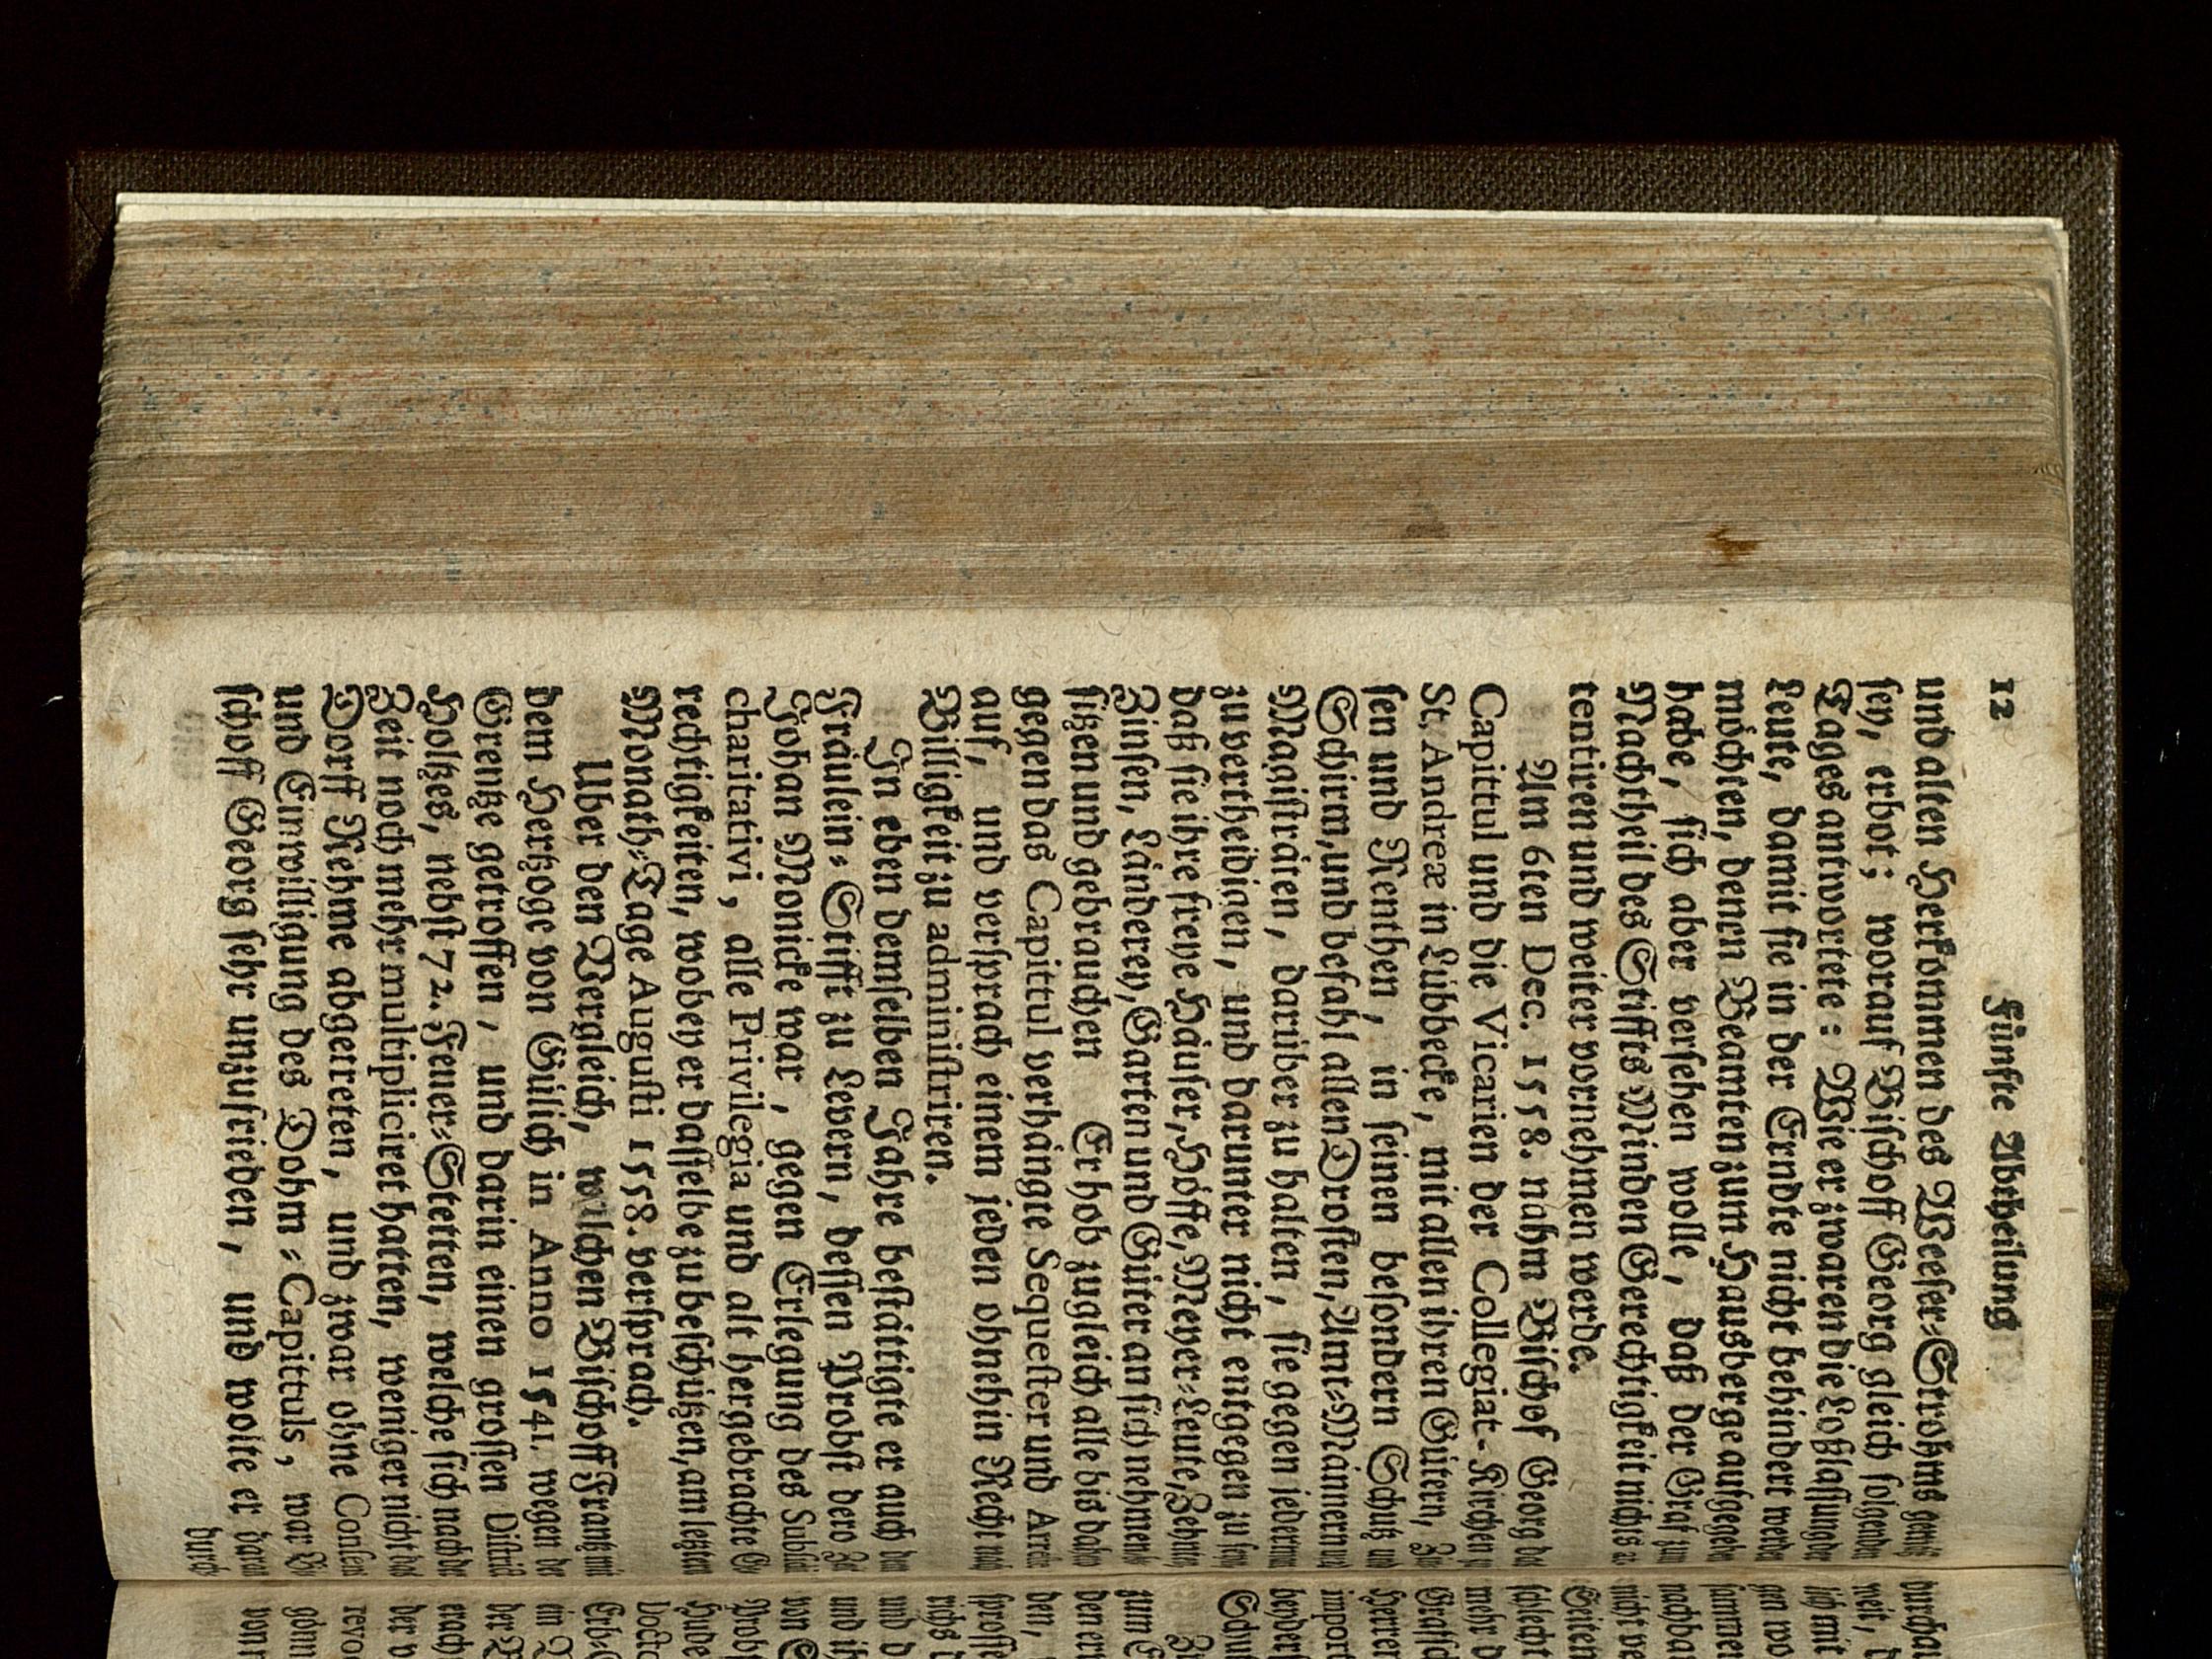 12 Fünfte Abtheilung
und alten Herkommen des Weeser-Strohms gemäß
sey, erbot; worauf Bischoff Georg gleich folgenden
Tages antwortete: Wie er zwaren die Loßlassung der
Leute, damit sie in der Erndte nicht behindert werden
möchten, denen Beamten zum Hausberge aufgegeben
habe, sich aber versehen wolle, daß der Graf zum
Nachtheil des Stiffts Minden Gerechtigkeit nichts at-
tentiren und weiter vornehmen werde.
Am 6ten Dec. 1558. nahm Bischof Georg das
Capittul und die Vicarien der Collegiat-Kirchen
St. Andreæ in Lübbecke, mit allen ihren Gütern, Zin-
sen und Renthen, in seinen besondern Schutz und
Schirm, und befahl allen Drosten, Amt-Männern und
Magisträten, darüber zu halten, sie gegen jederman
zu vertheidigen, und darunter nicht entgegen zu seyn,
daß sie ihre freye Häuser, Höffe, Meyer-Leute, Zehnten,
Zinsen, Länderey, Garten und Güter an sich nehmen,
sitzen und gebrauchen Er hob zugleich alle bis dahin
gegen das Capittul verhängte Sequester und Arreste
auf, und versprach einem jeden ohnehin Recht und
Billigkeit zu administriren.
In eben demselben Jahre bestättigte er auch dem
Fräulein-Stifft zu Levern, dessen Probst dero Zeit
Johan Monicke war, gegen Erlegung des Subsidii
charitativi, alle Privilegia und alt hergebrachte Ge-
rechtigkeiten, wobey er dasselbe zu beschützen, am letzten
Monaths-Tage Augusti 1558. versprach.
Uber den Vergleich, welchen Bischoff Frantz mit
dem Hertzoge von Gülich in Anno 1541. wegen der
Grentze getroffen, und darin einen grossen District
Holtzes, nebst 72. Feuer-Stetten, welche sich nach der
Zeit noch mehr multipliciret hatten, weniger nicht das
Dorff Rehme abgetreten, und zwar ohne Consens
und Einwilligung des Dohm-Capittuls, war Bi-
schoff Georg sehr unzufrieden, und wolte er darin
durch-